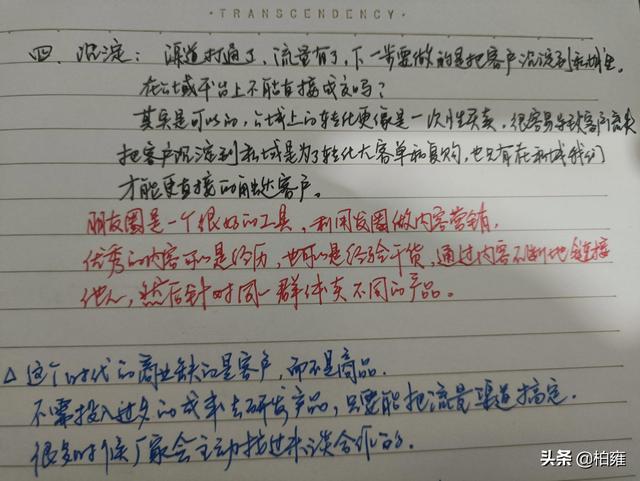 ·TRANSCENDENCY·
四、沉淀：渠道打通了，流量有了，下一步要做的是把客户沉淀到私域里。
在公域平台上不能直接成交吗？
其实是可以的，公域上的转化更像是一次性买卖，很容易导致客户流失
把客户沉淀到私域是为了转化大客单和复购，也只有在私域我们
才能更直接的触达客户。
朋友圈是一个很好的工具，利用友圈做内容营销，
优秀的内容可以是经历，也可以是经验干货，通过内容不断地链接
他人，然后针对同一群体卖不同的产品。
△这个时代的商业缺的是客户，而不是商品.
不需投入过多的成本去研发产品，只要能把流量渠道搞定.
很多时候厂家会主动找过来谈合作的.
头条 @柏雍